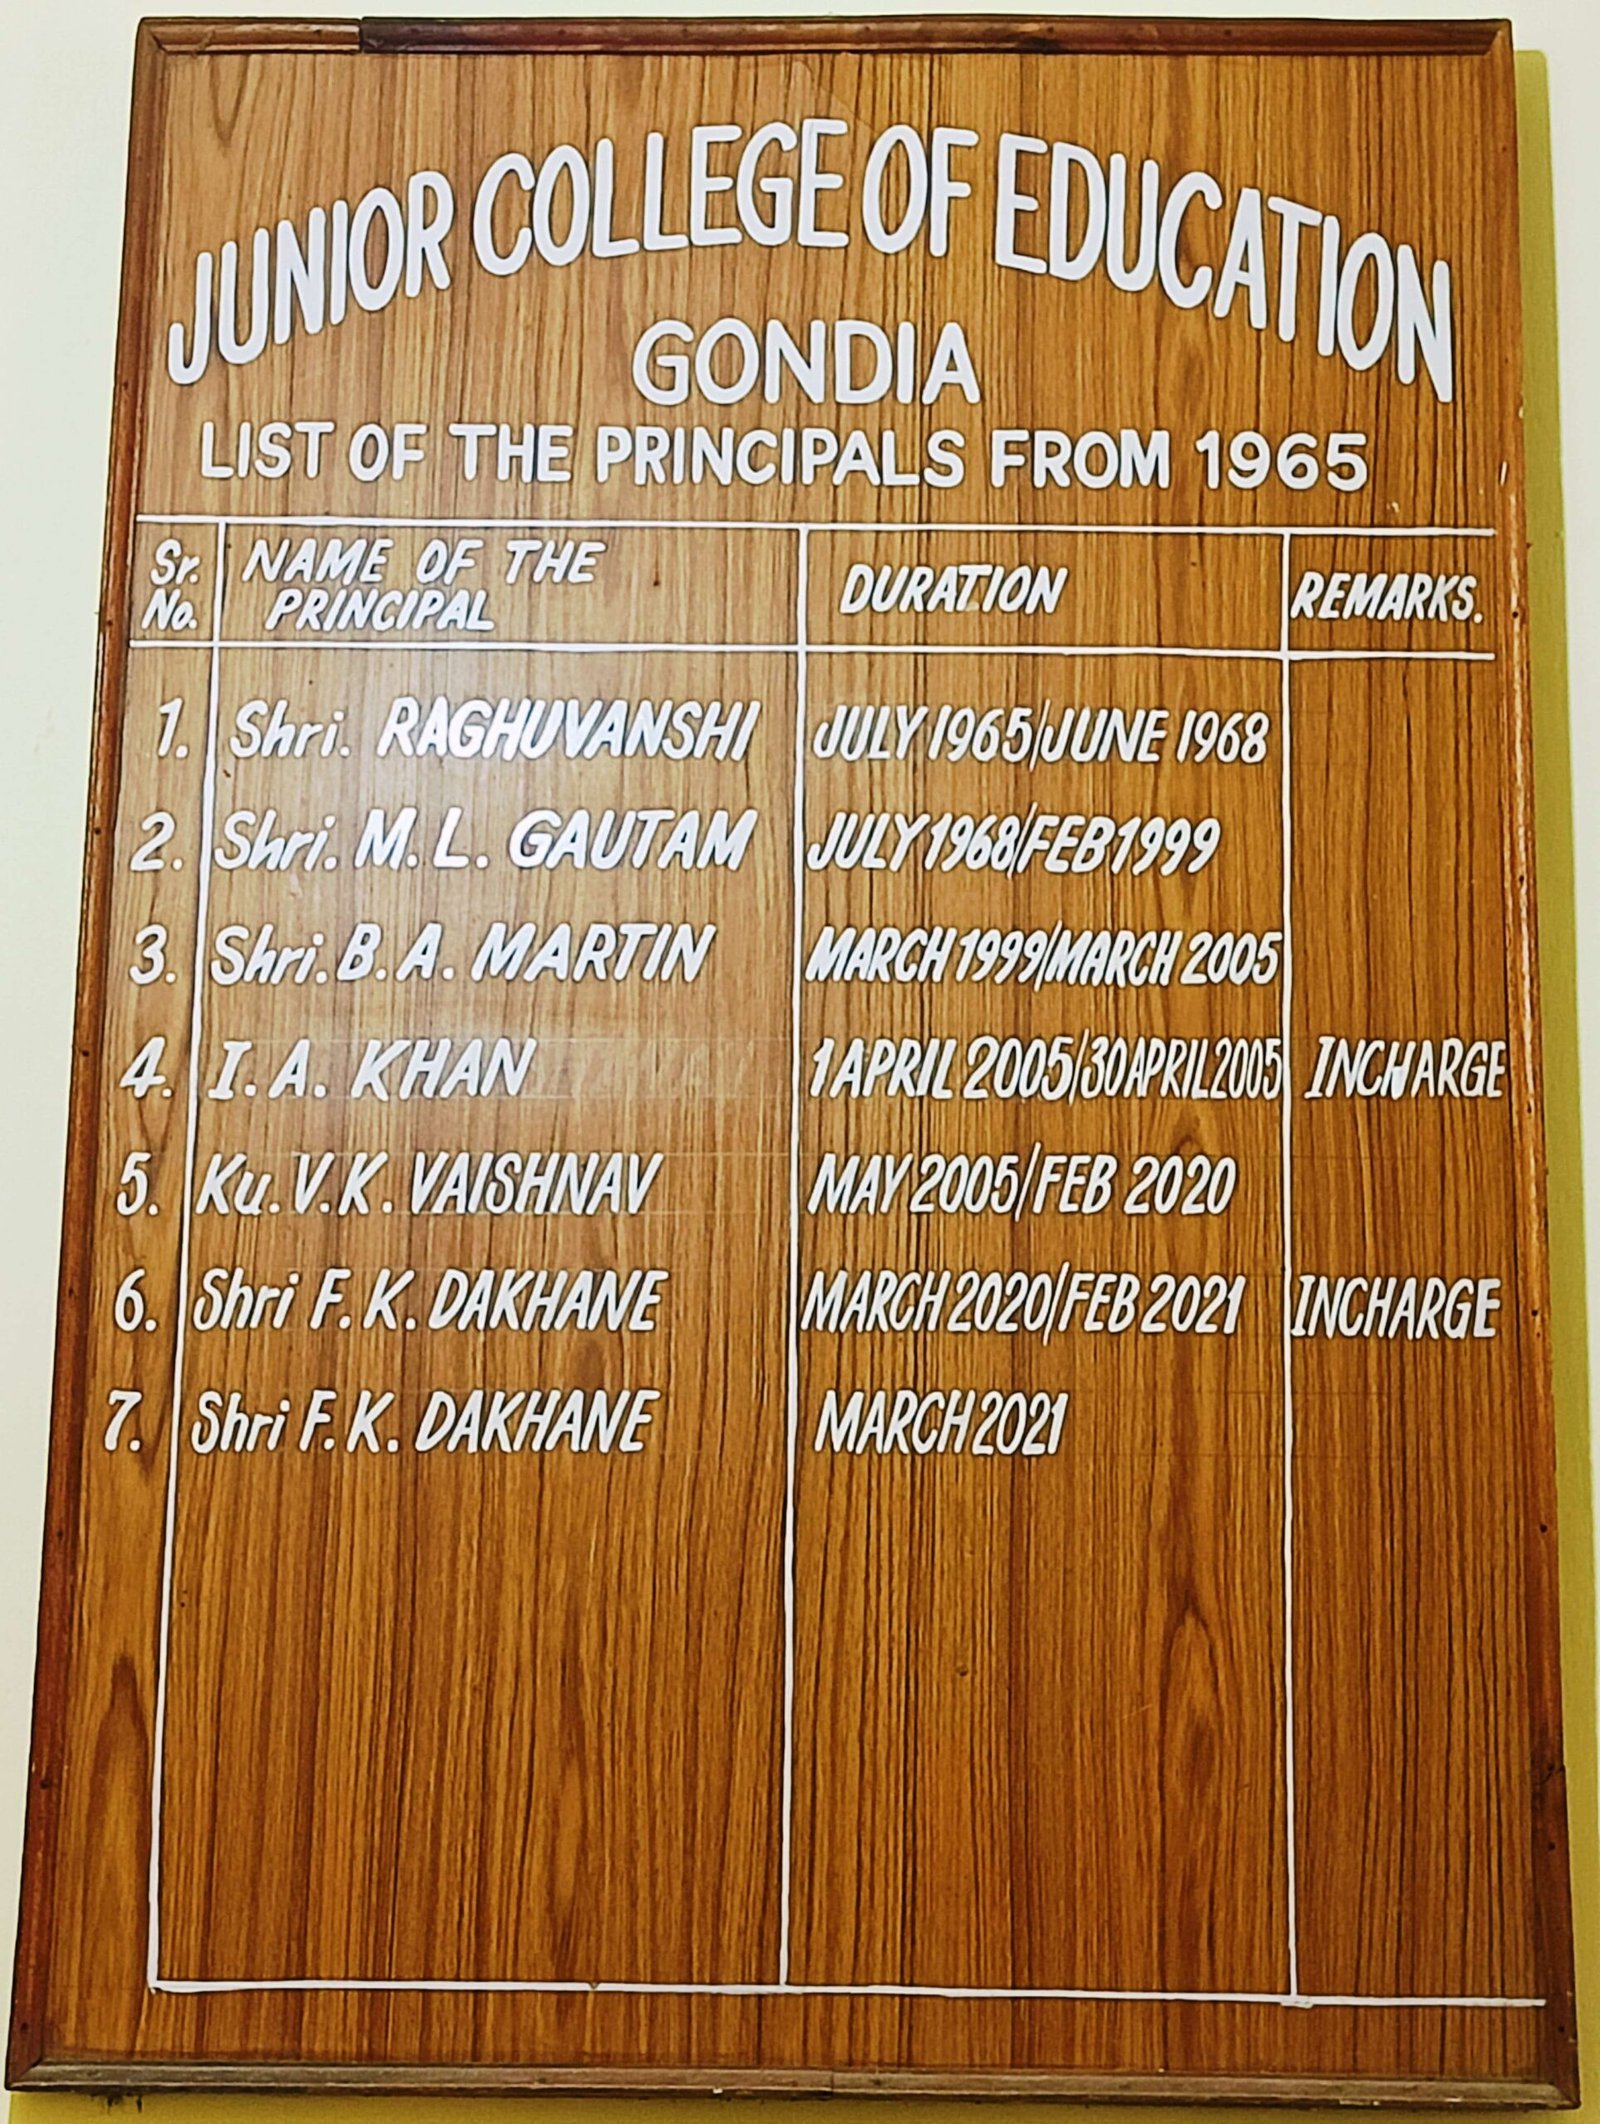 JUNIOR COLLEGE OF EDUCATION
GONDIA
LIST OF THE PRINCIPALS FROM 1965
Sr. No. NAME OF THE PRINCIPAL DURATION REMARKS.
1. Shri. RAGHUVANSHI JULY 1965/JUNE 1968
2. Shri. M. L. GAUTAM JULY 1968/FEB 1999
3. Shri. B. A. MARTIN MARCH 1999/MARCH 2005
4. I. A. KHAN 1 APRIL 2005/30 APRIL 2005 INCHARGE
5. Ku. V. K. VAISHNAV MAY 2005/FEB 2020
6. Shri F. K. DAKHANE MARCH 2020/FEB 2021 INCHARGE
7. Shri F. K. DAKHANE MARCH 2021